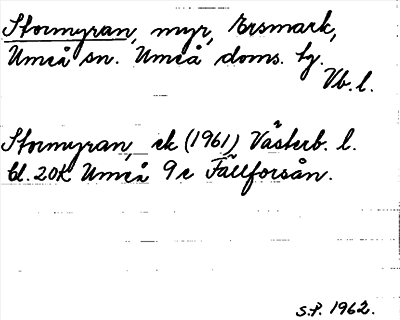 Stormyran, myr, Ersmark,
Umeå sn. Umeå doms. tg.
Vb. l.
Stormyran, ek (1961) Västerb. l.
bl. 20K Umeå 9c Fällforsån.
S.P. 1962.